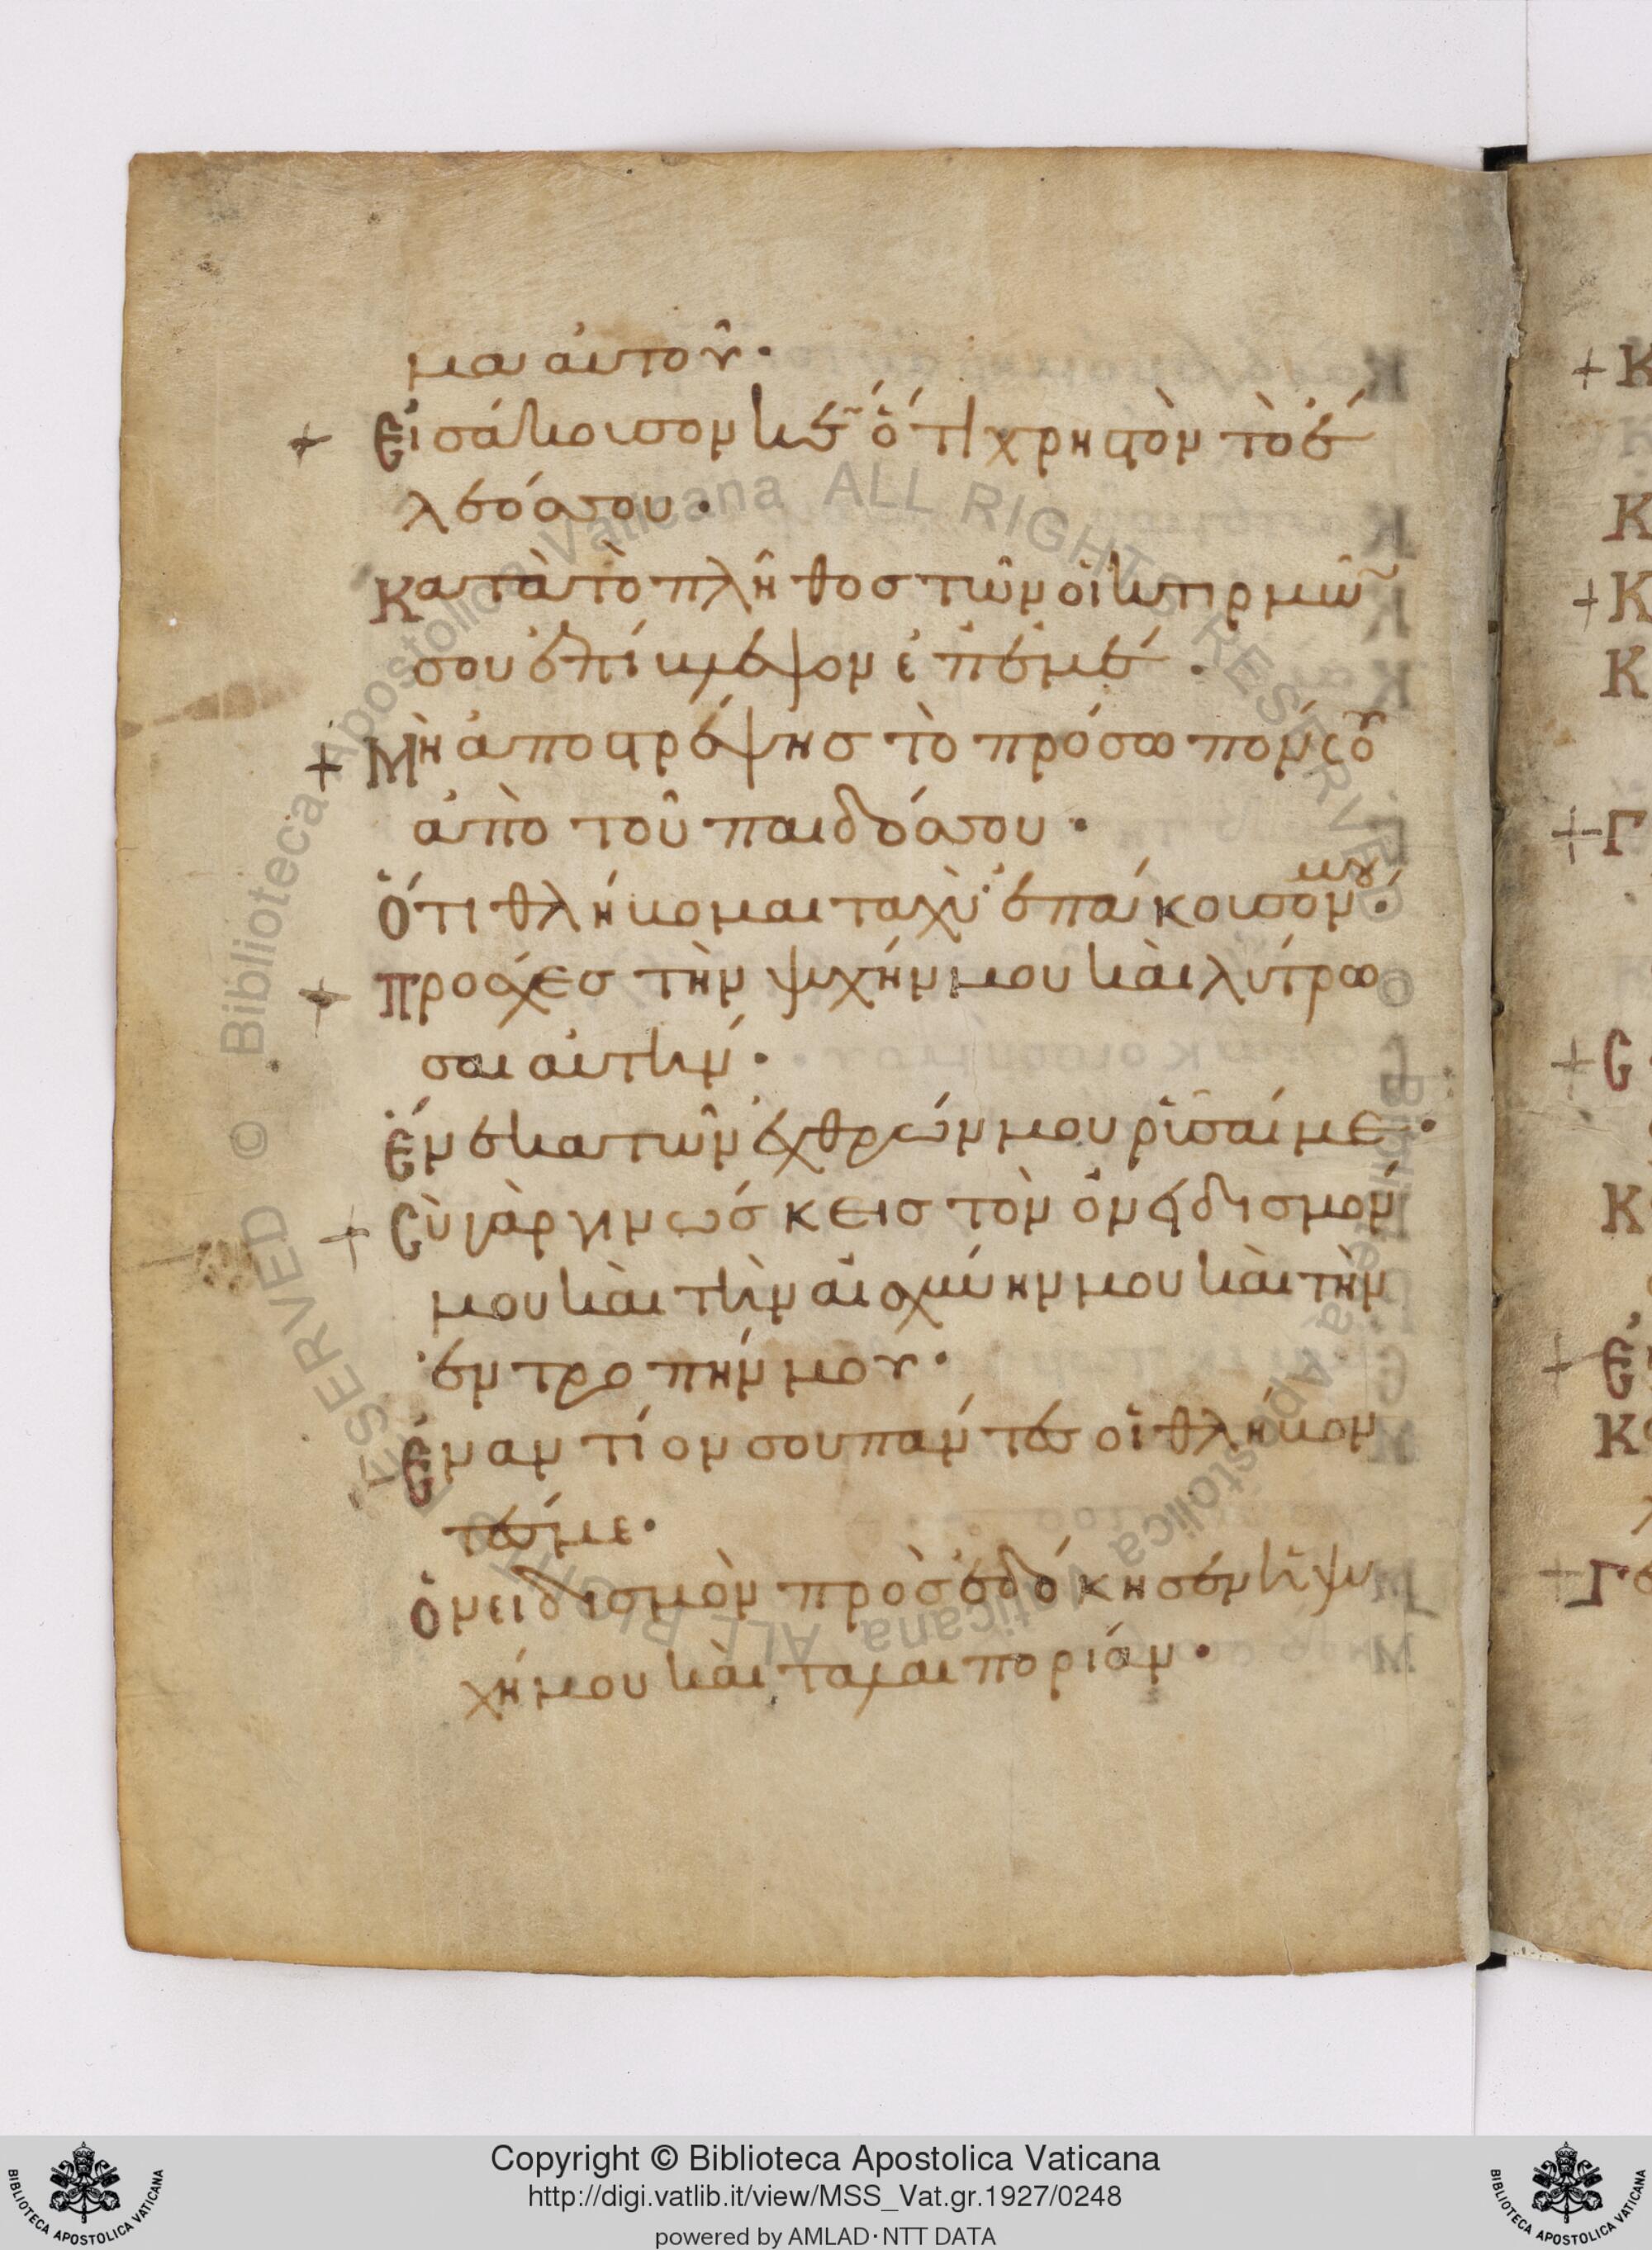 μα αὐτοῦ·
+ Εἰσάκουσόν κε ὅτι χρηστὸν τὸ ἔ
λεόσ σου·
Κατὰ τὸ πλῆθοσ τῶν οἰκτιρμῶ
σου ἐπίβλεψον ἐπ' ἐμέ·
+ Μὴ ἀποστρέψησ τὸ πρόσωπόν σου
ἀπὸ τοῦ παιδόσ σου·
Ὅτι θλήβομαι ταχὺ ἐπάκουσόν μου·
+ Πρόσχεσ τὴν ψυχήν μου καὶ λύτρω
σαι αὐτήν·
Ἕνεκα τῶν ἐχθρῶν μου ρῦσαί με·
+ Σὺ γὰρ γινώσκεισ τὸν ὀνειδισμόν
μου καὶ τὴν αἰσχύνην μου καὶ τὴν
ἐντροπήν μου·
Ἐναντίον σου πάντεσ οἱ θλήβον
τέσ με·
Ὀνειδισμὸν προσεδόκησεν ἡ ψυ
χή μου καὶ ταλαιπορίαν·
+ Κ
Κ
+ Κ
Κ
+ Γ
+ Σ
Κ
+ Ἐ
Κ
+ Γ
BIBLIOTECA APOSTOLICA VATICANA
Copyright © Biblioteca Apostolica Vaticana
http://digi.vatlib.it/view/MSS_Vat.gr.1927/0248
powered by AMLAD·NTT DATA
BIBLIOTECA APOSTOLICA VATICANA
© Biblioteca Apostolica Vaticana ALL RIGHTS RESERVED
© Biblioteca Apostolica Vaticana ALL RIGHTS RESERVED